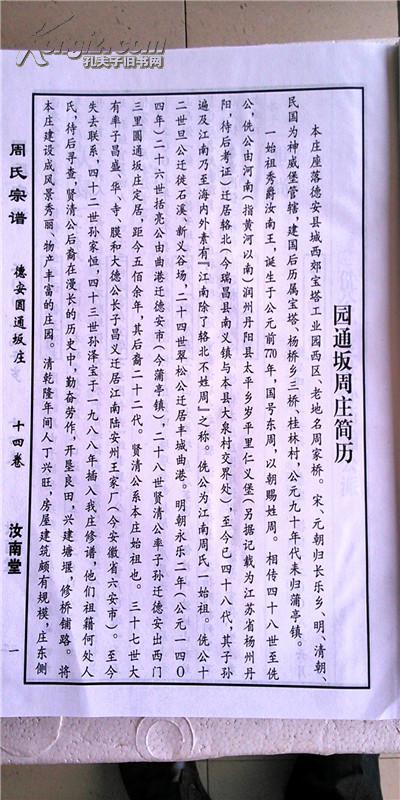 Kongfz.com
孔夫子旧书网
园通坂周庄简历
本庄座落德安县城西郊宝塔工业园西区、老地名周家桥。宋、元朝归长乐乡、明、清朝、
民国为神威堡管辖，建国后历属宝塔、杨桥乡三桥、桂林村，公元九十年代末归蒲亭镇。
一始祖秀爵汝南王，诞生于公元前770年，国号东周，以朝赐姓周。相传四十八世至侁
公，侁公由河南（指黄河以南）润州丹阳县太平乡岁平里仁义堡（另据记载为江苏省杨州丹
阳，待后考证）迁居辂北（今瑞昌县南义镇与本县大泉村交界处），至今已四十八代，其子孙
遍及江南乃至海内外素有『江南除了辂北不姓周』之称。侁公为江南周氏一始祖。侁公十
二世旦公迁徙石溪、新义谷场，二十四世翠松公迁居丰城曲港。明朝永乐二年（公元一四〇
四年）二十六世括亮公由曲港迁德安市（今蒲亭镇），二十八世贤清公率子孙迁德安出西门
三里圆通坂庄定居，距今五佰余年，其后裔二十二代。贤清公系本庄始祖也。三十七世大
有率子昌盛、华、寺、膜和大德公长子昌义迁居江南陆安州王家厂（今安徽省六安市）。至今
失去联系，四十二世孙家恒，四十三世孙泽宝于一九八八年插入我庄修谱，他们祖籍何处人
氏，待后寻查，贤清公后裔在漫长的历史中，勤奋劳作，开垦良田，兴建塘堰，修桥铺路。将
本庄建设成风景秀丽、物产丰富的庄园。清乾隆年间人丁兴旺，房屋建筑颇有规模，庄东侧
周氏宗谱
德安圆通坂庄
十四卷
汝南堂
一